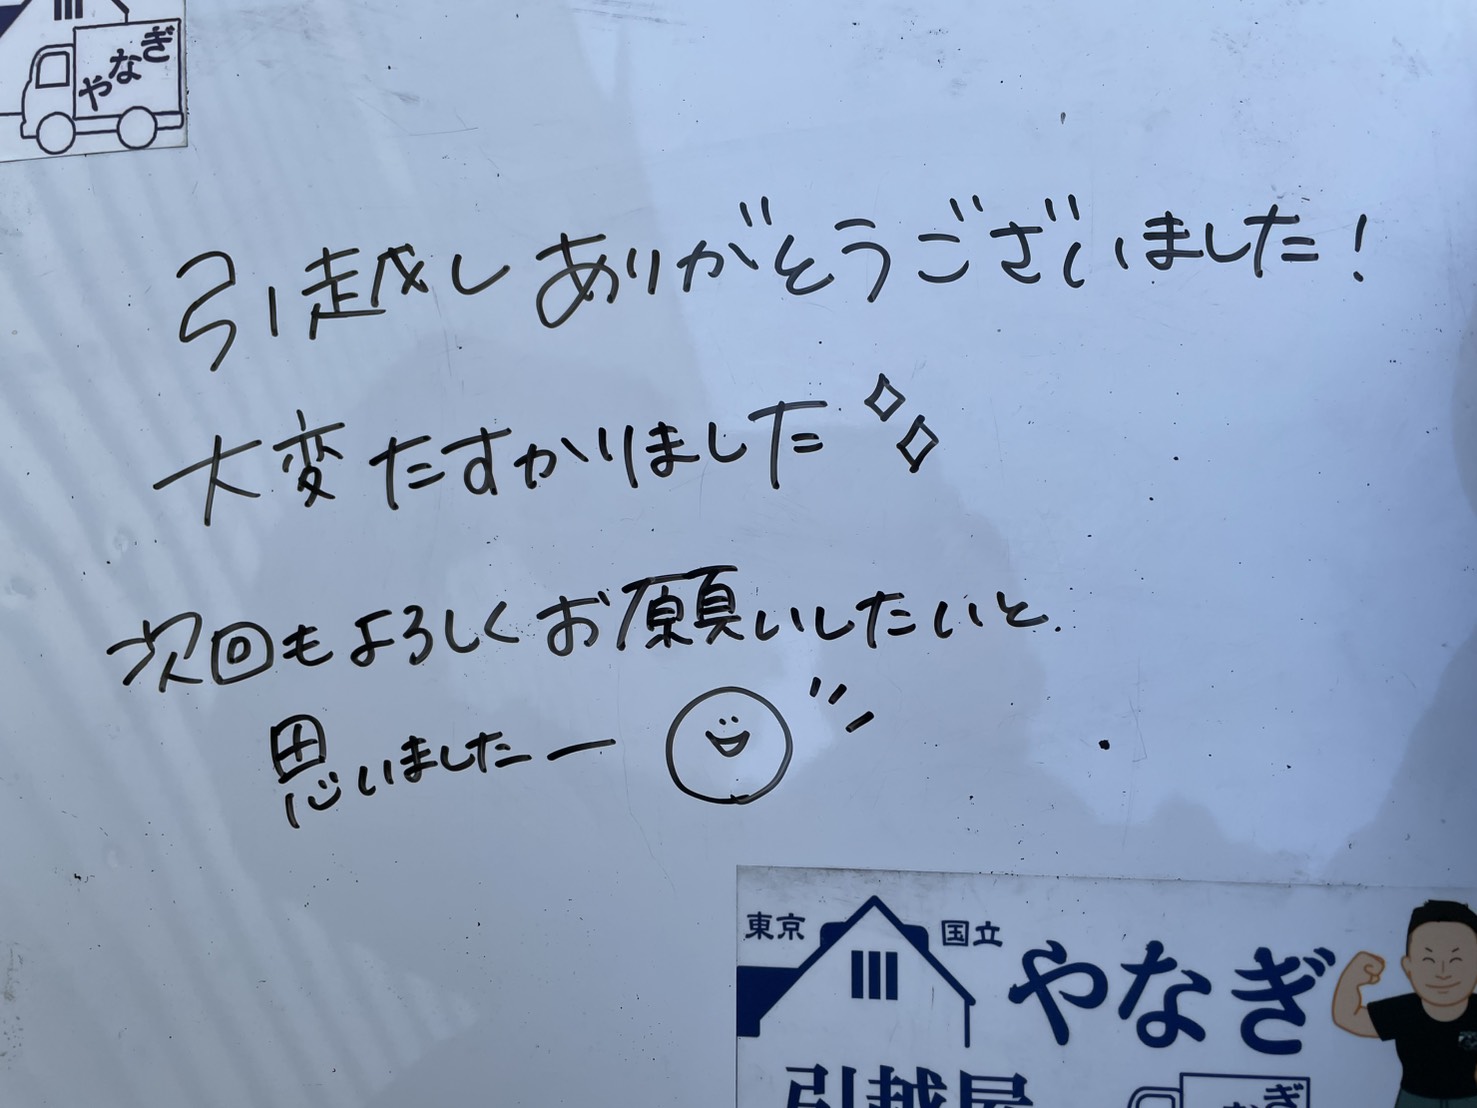 やなぎ
引越しありがとうございました!
大変たすかりました
次回もよろしくお願いしたいと
思いましたー
東京 国立
やなぎ
引越屋
やなぎ